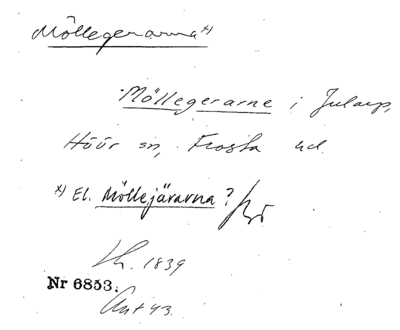 Möllegerarna x)
Möllegerarne i Jularp,
Höör sn, Frosta hd.
x) El. Möllejärarna?
Lh. 1839
Nr 6853.
Ant 43.